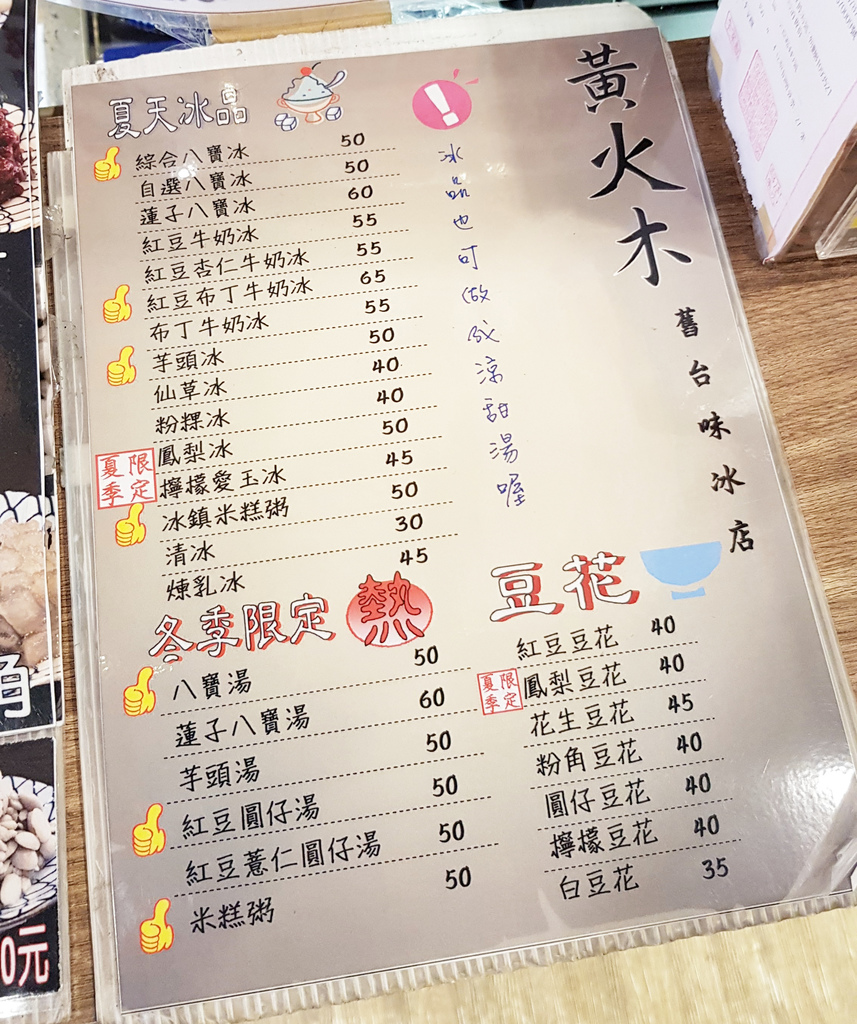 黃火木
舊台味冰店
夏天冰品
綜合八寶冰 50
自選八寶冰 50
蓮子八寶冰 60
紅豆牛奶冰 55
紅豆杏仁牛奶冰 55
紅豆布丁牛奶冰 65
布丁牛奶冰 55
芋頭冰 50
仙草冰 40
粉粿冰 40
鳳梨冰 50
夏季限定
檸檬愛玉冰 45
冰鎮米糕粥 50
清冰 30
煉乳冰 45
!
冰品也可做成涼甜湯喔
冬季限定 熱
八寶湯 50
蓮子八寶湯 60
芋頭湯 50
紅豆圓仔湯 50
紅豆薏仁圓仔湯 50
米糕粥 50
豆花
紅豆豆花 40
夏季限定
鳳梨豆花 40
花生豆花 45
粉角豆花 40
圓仔豆花 40
檸檬豆花 40
白豆花 35
角
0元